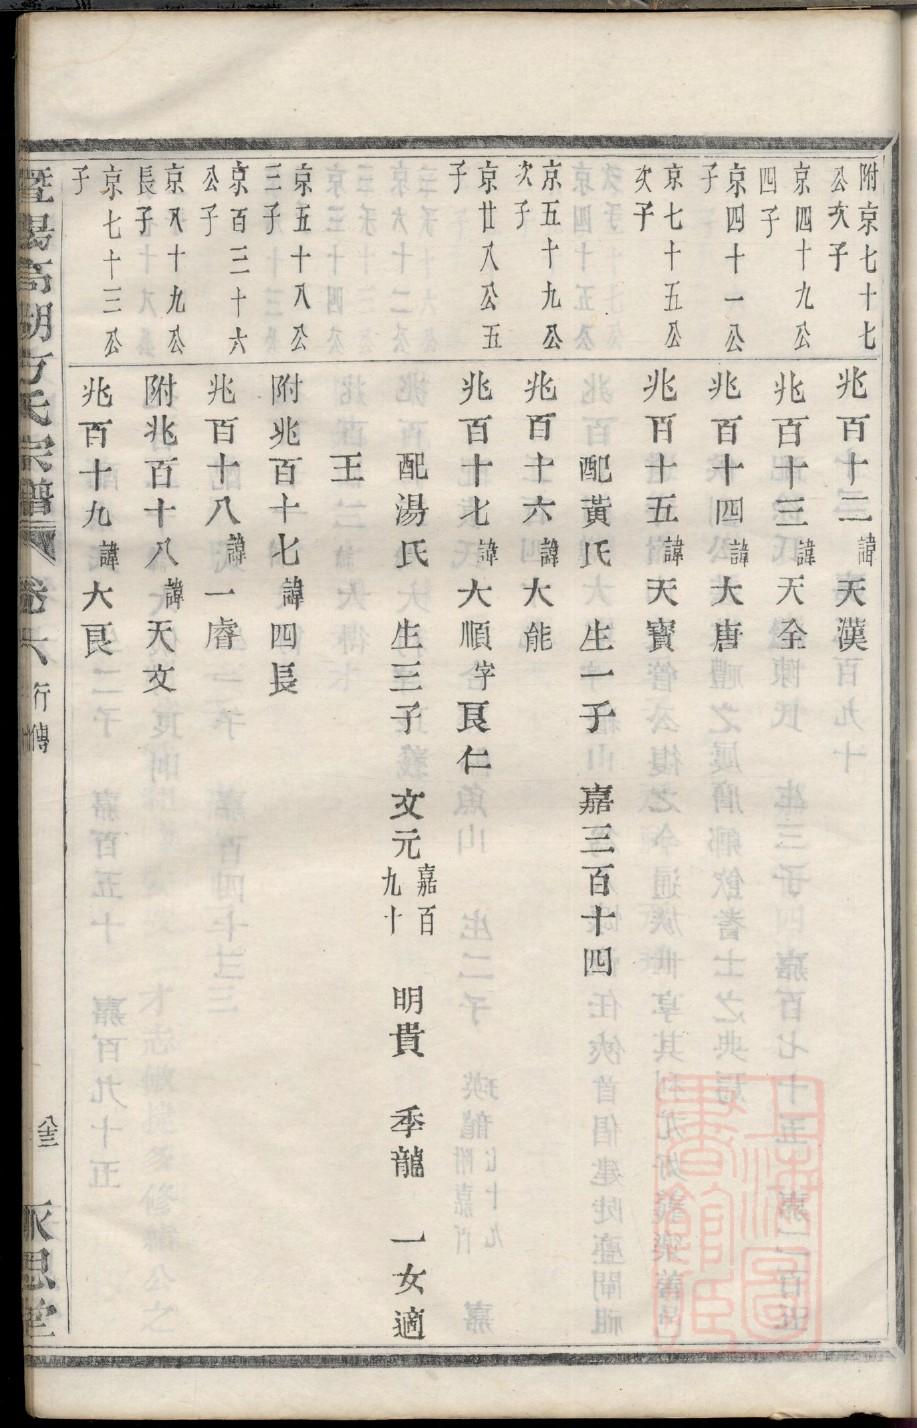 附京七十七公次子
兆百十二諱天漢
京四十九公四子
兆百十三諱天全
京四十一公子
兆百十四諱大唐
京七十五公次子
兆百十五諱天寶
配黃氏 生一子 嘉三百十四
京五十九公次子
兆百十六諱大能
京廿八公五子
兆百十七諱大順字艮仁
配湯氏 生三子 文元嘉百九十 明貴 季龍 一女適
王
京五十八公三子
附兆百十七諱四長
京百三十六公子
兆百十八諱一睿
京八十九公長子
附兆百十八諱天文
京七十三公子
兆百十九諱大艮
暨陽高湖方氏宗譜 卷六 行傳 永思堂